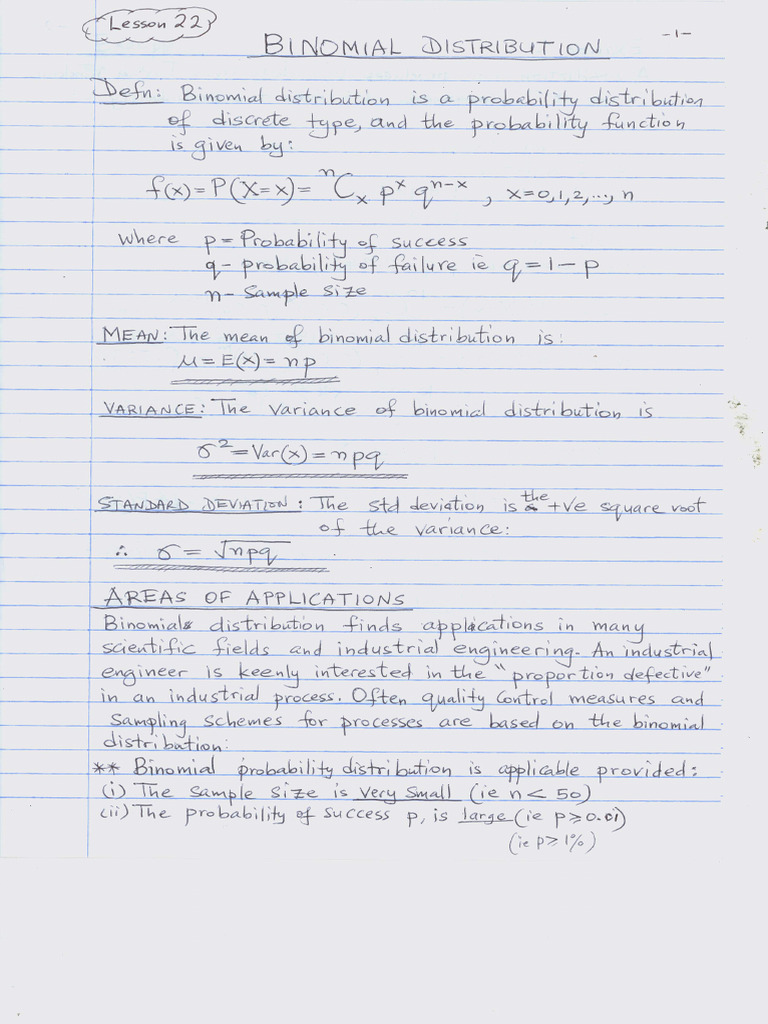 Lesson 22
-1-
BINOMIAL DISTRIBUTION
Defn: Binomial distribution is a probability distribution
of discrete type, and the probability function
is given by:
f(x) = P(X=x) = ⁿCₓ pˣ qⁿ⁻ˣ , x=0,1,2,..., n
where p = Probability of success
q - probability of failure ie q = 1 - p
n - Sample size
MEAN: The mean of binomial distribution is:
μ = E(x) = np
VARIANCE: The variance of binomial distribution is
σ² = Var(x) = npq
STANDARD DEVIATION: The std deviation is the +ve square root
of the variance:
∴ σ = √npq
AREAS OF APPLICATIONS
Binomial distribution finds applications in many
scientific fields and industrial engineering. An industrial
engineer is keenly interested in the "proportion defective"
in an industrial process. Often quality control measures and
sampling schemes for processes are based on the binomial
distribution.
** Binomial probability distribution is applicable provided:
(i) The sample size is very small (ie n < 50)
(ii) The probability of success p, is large (ie p ⩾ 0.01)
(ie p ⩾ 1%)